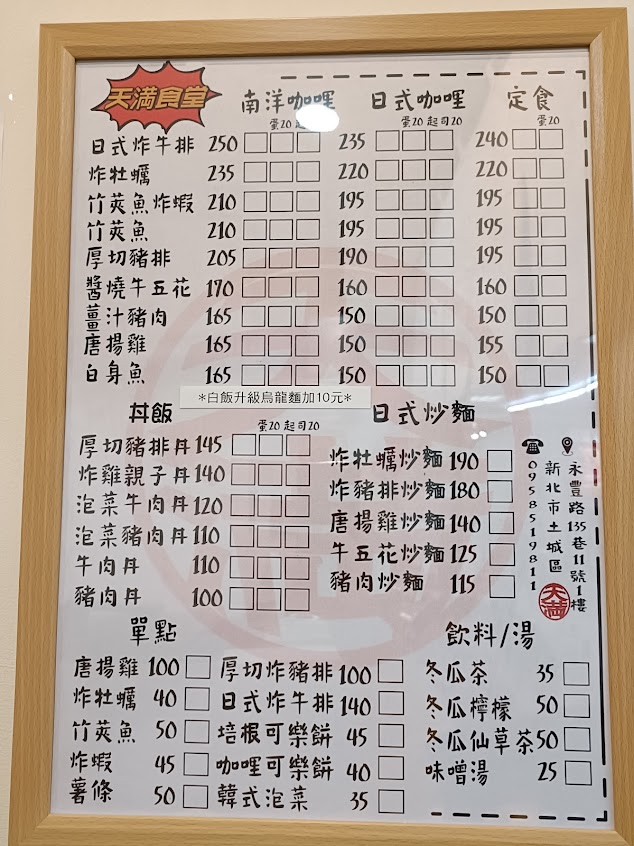 天満食堂
南洋咖哩 日式咖哩 定食
蛋20 起司20 蛋20 起司20 蛋20
日式炸牛排 250 235 240
炸牡蠣 235 220 220
竹莢魚炸蝦 210 195 195
竹莢魚 210 195 195
厚切豬排 205 190 195
醬燒牛五花 170 160 160
薑汁豬肉 165 150 150
唐揚雞 165 150 155
白身魚 165 150 150
*白飯升級烏龍麵加10元*
丼飯
蛋20 起司20
厚切豬排丼 145
炸雞親子丼 140
泡菜牛肉丼 120
泡菜豬肉丼 110
牛肉丼 110
豬肉丼 100
日式炒麵
炸牡蠣炒麵 190
炸豬排炒麵 180
唐揚雞炒麵 140
牛五花炒麵 125
豬肉炒麵 115
新北市土城區
永豐路135巷11號1樓
0958519811
天満
單點
唐揚雞 100 厚切炸豬排 100
炸牡蠣 40 日式炸牛排 140
竹莢魚 50 培根可樂餅 45
炸蝦 45 咖哩可樂餅 40
薯條 50 韓式泡菜 35
飲料/湯
冬瓜茶 35
冬瓜檸檬 50
冬瓜仙草茶 50
味噌湯 25